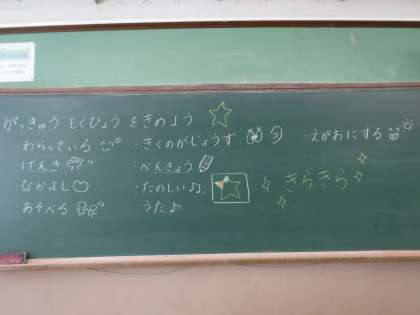 がっきゅう もくひょう をきめよう
わらっている
・げんき
・なかよし
・あそべる
・きくのがじょうず
・べんきょう
・たのしい♪
・うた♪
・えがおにする
きらきら